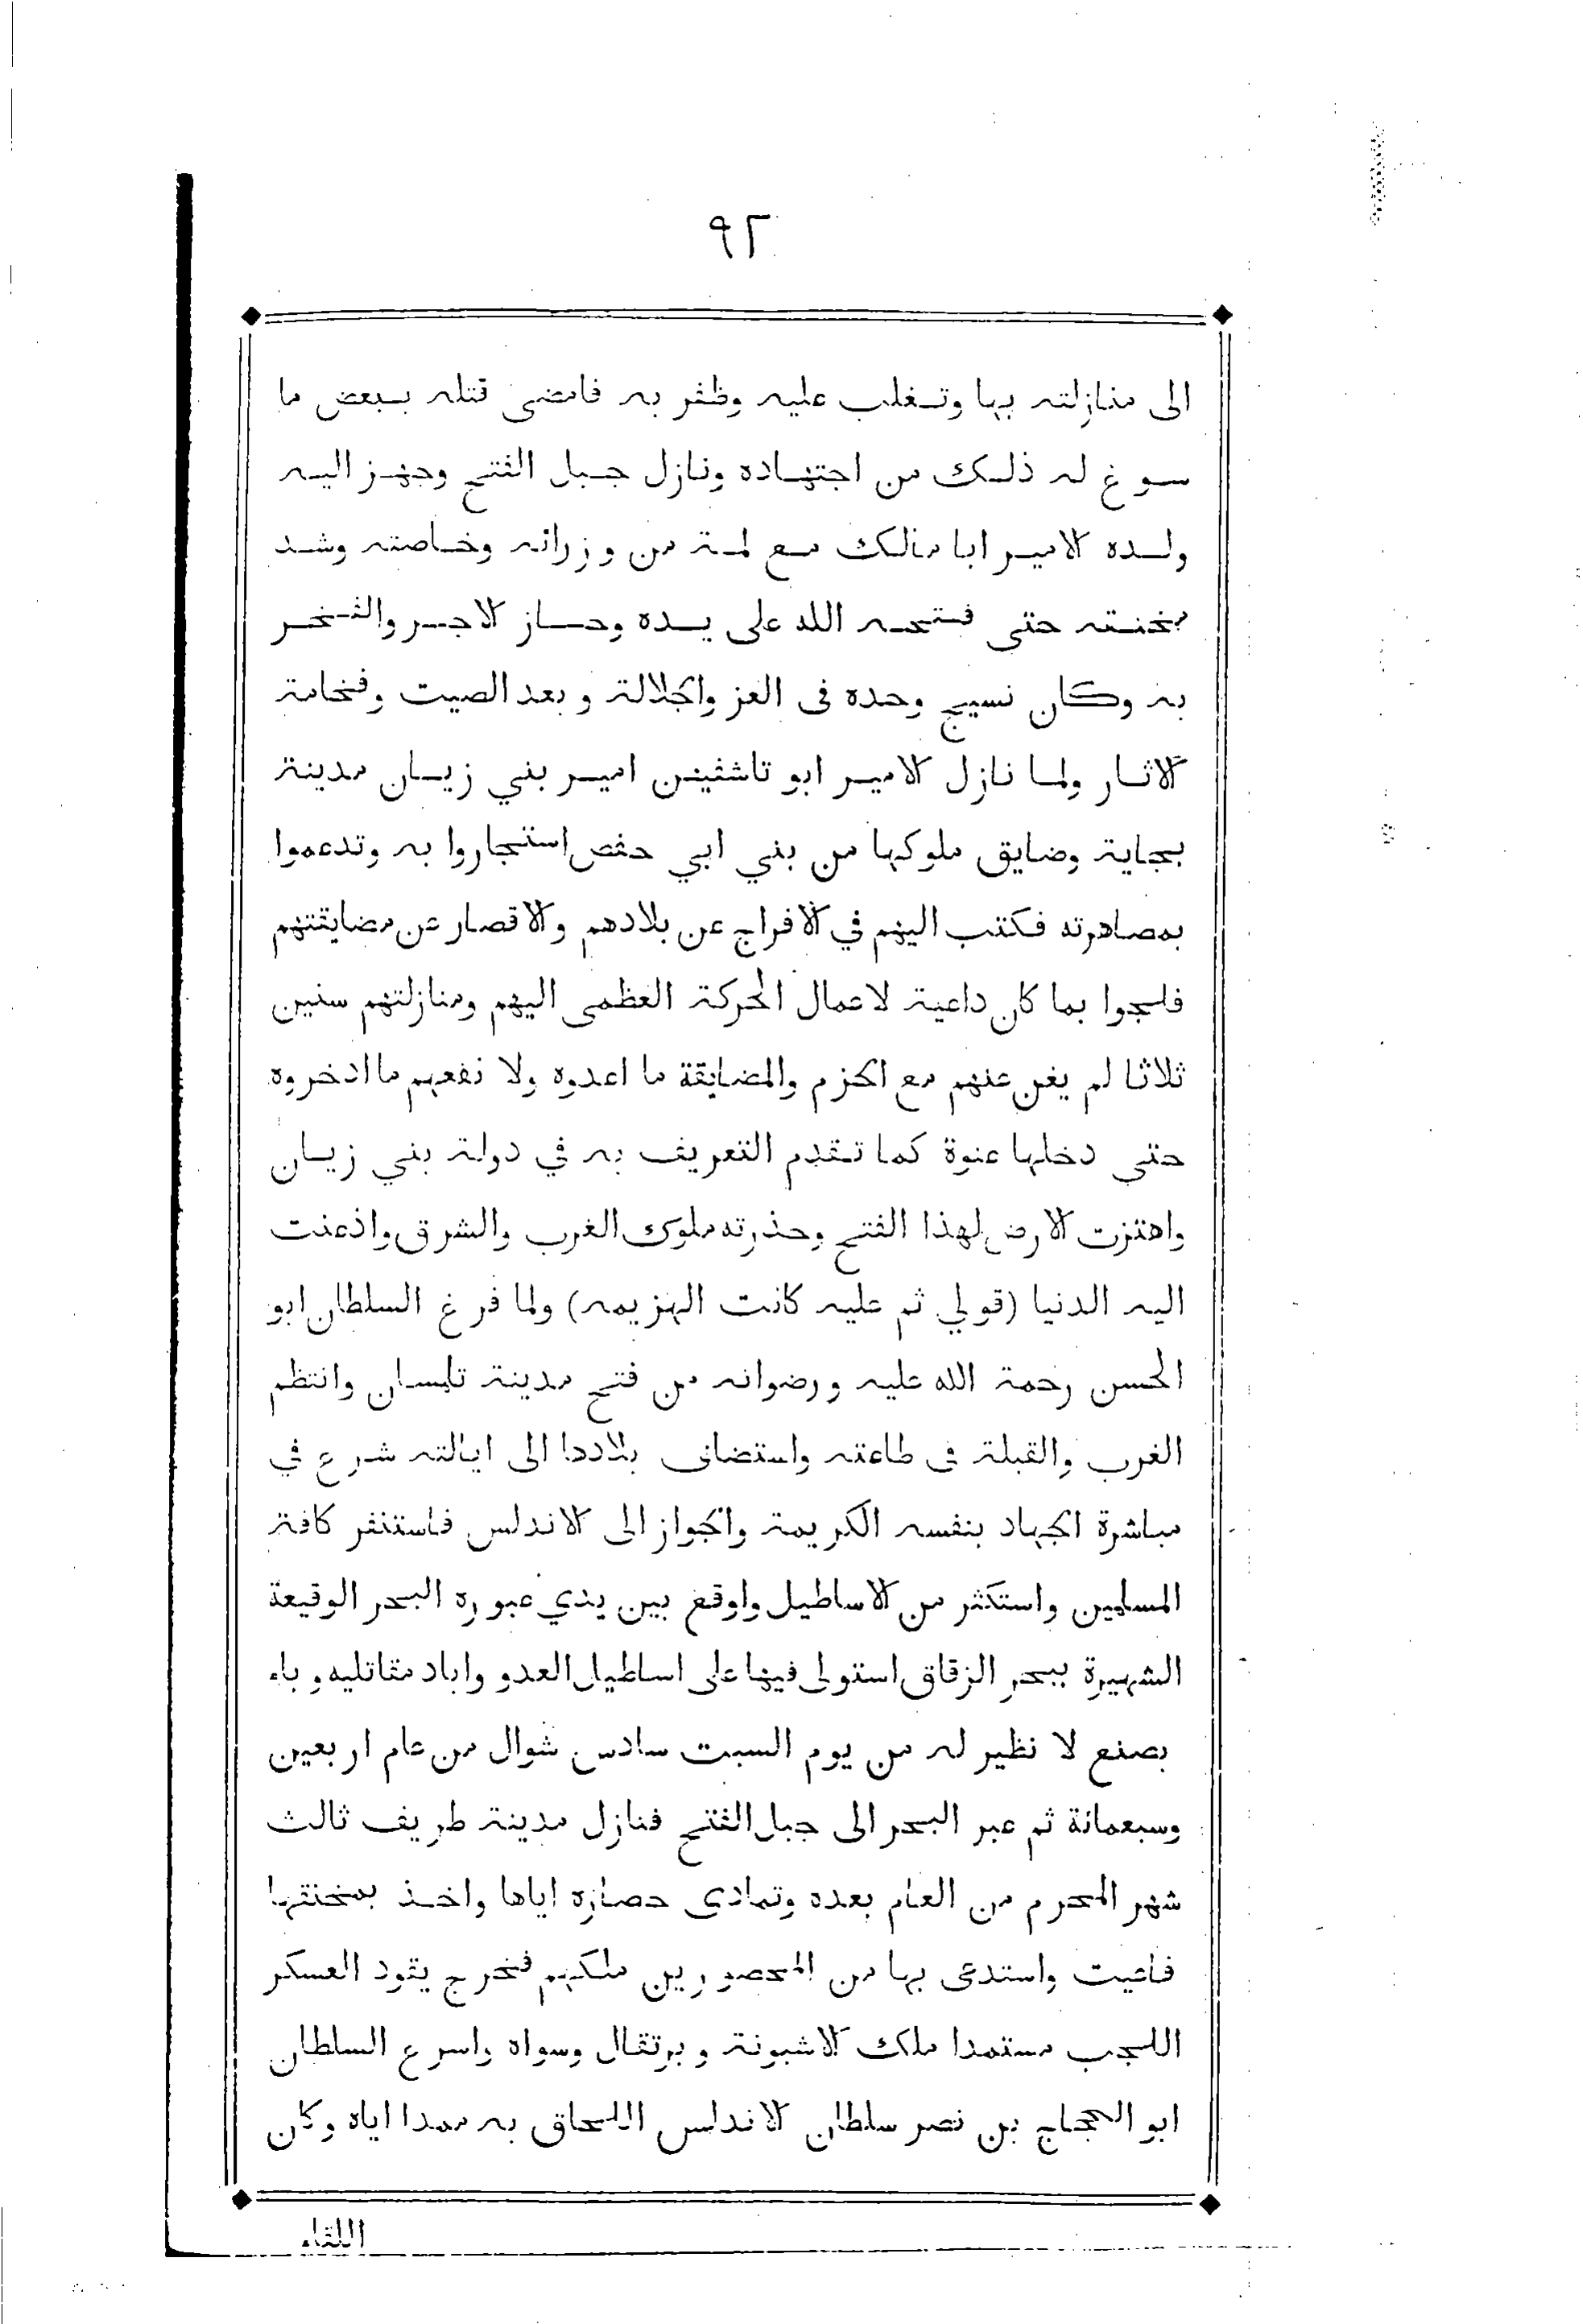 ٩٢
الى منازلته بها وتغلب عليه وظفر به فامضى قتله ببعض ما
سوغ له ذلك من اجتهاده ونازل جبل الفتح وجهز اليه
ولده الامير ابا مالك مع لمة من وزرائه وخاصته وشد
مخنقه حتى فتحه الله على يده وحاز الاجر والفخر
به وكان نسيج وحده في العز والجلالة وبعد الصيت وفخامة
الاثار ولما نازل الامير ابو تاشفين امير بني زيان مدينة
بجاية وضايق ملوكها من بني ابي حفص استجاروا به وتدعموا
بمصاهرته فكتب اليهم في الافراج عن بلادهم والاقصار عن مضايقتهم
فلجوا بما كان داعية لاعمال الحركة العظمى اليهم ومنازلتهم سنين
ثلاثا لم يغن عنهم مع الحزم والمضايقة ما اعدوه ولا نفعهم ما ادخروه
حتى دخلها عنوة كما تقدم التعريف به في دولة بني زيان
واهتزت الارض لهذا الفتح وحذرته ملوك الغرب والشرق واذعنت
اليه الدنيا (قولي ثم عليه كانت الهزيمه) ولما فرغ السلطان ابو
الحسن رحمة الله عليه ورضوانه من فتح مدينة تلمسان وانتظم
الغرب والقبلة في طاعته واستضاف بلادها الى ايالته شرع في
مباشرة الجهاد بنفسه الكريمة والجواز الى الاندلس فاستنفر كافة
المسلمين واستكثر من الاساطيل واوقع بين يدي عبوره البحر الوقيعة
الشهيرة ببحر الزقاق استولى فيها على اساطيل العدو واباد مقاتليه وباء
بصنع لا نظير له من يوم السبت سادس شوال من عام اربعين
وسبعمائة ثم عبر البحر الى جبل الفتح فنازل مدينة طريف ثالث
شهر المحرم من العام بعده وتمادى حصاره اياها واخذ بمخنقها
فاعيت واستدعى بها من المحصورين ملكهم فخرج يقود العسكر
اللجب مستمدا ملك الاشبونة وبرتقال وسواه واسرع السلطان
ابو الحجاج بن نصر سلطان الاندلس اللحاق به ممدا اياه وكان
اللقاء